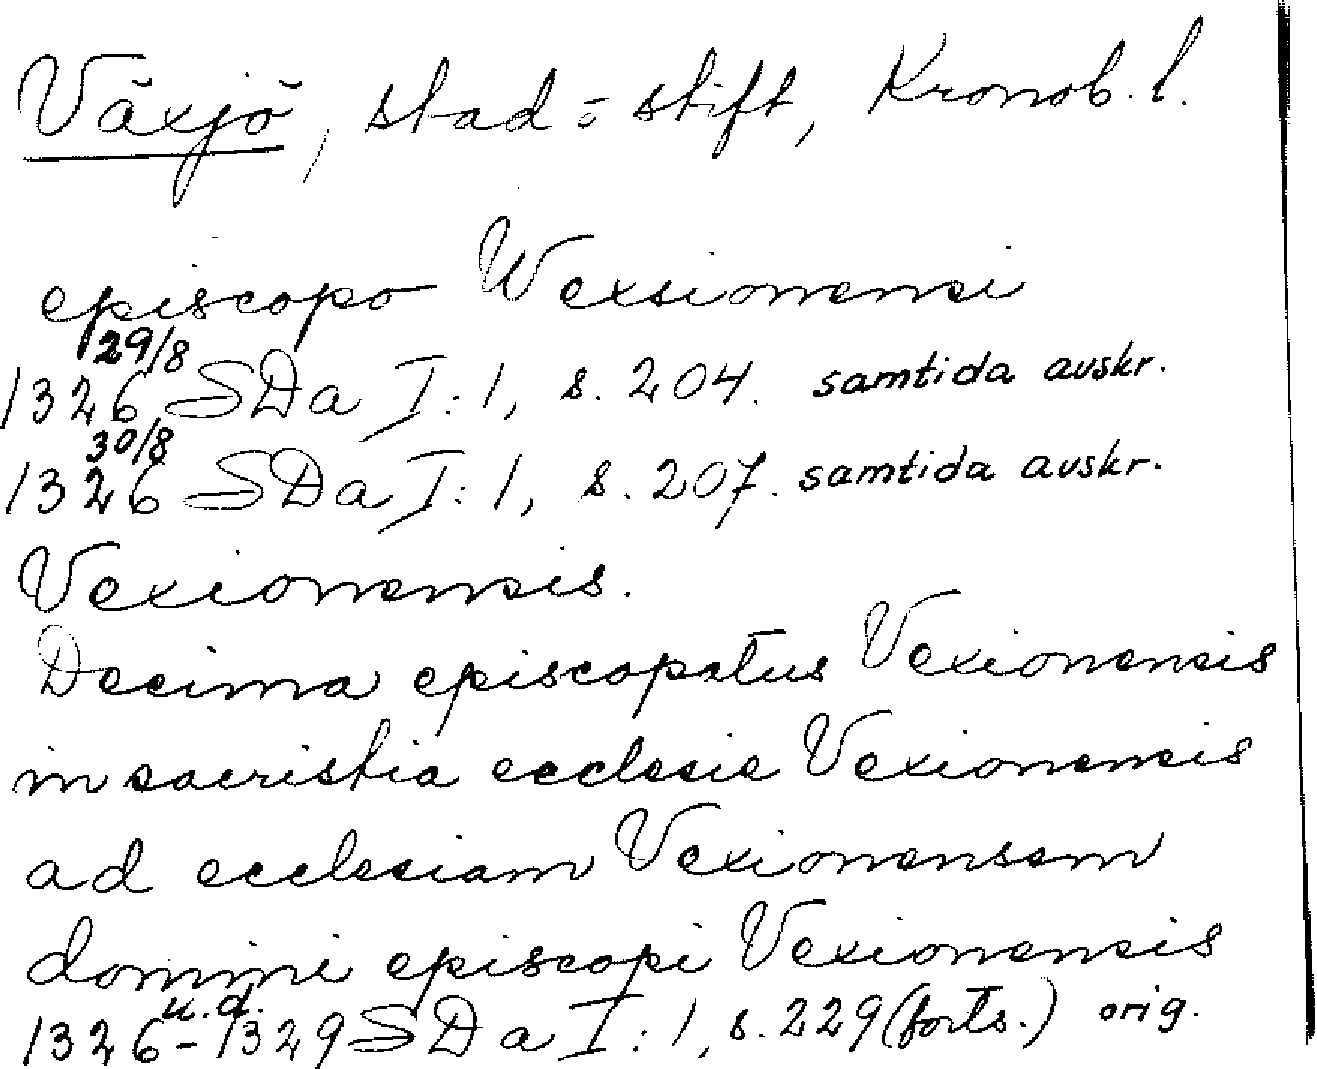 Växjö, stad o stift, Kronob. l.
episcopo Wexsionensi
1326 29/8 SDa I:1, s. 204. samtida avskr.
1326 30/8 SDa I:1, s. 207. samtida avskr.
Vexionensis.
Decima episcopatus Vexionensis
in sacristia ecclesie Vexionensis
ad ecclesiam Vexionensem
domini episcopi Vexionensis
1326-1329 u.d. SDa I:1, s. 229 (forts.) orig.